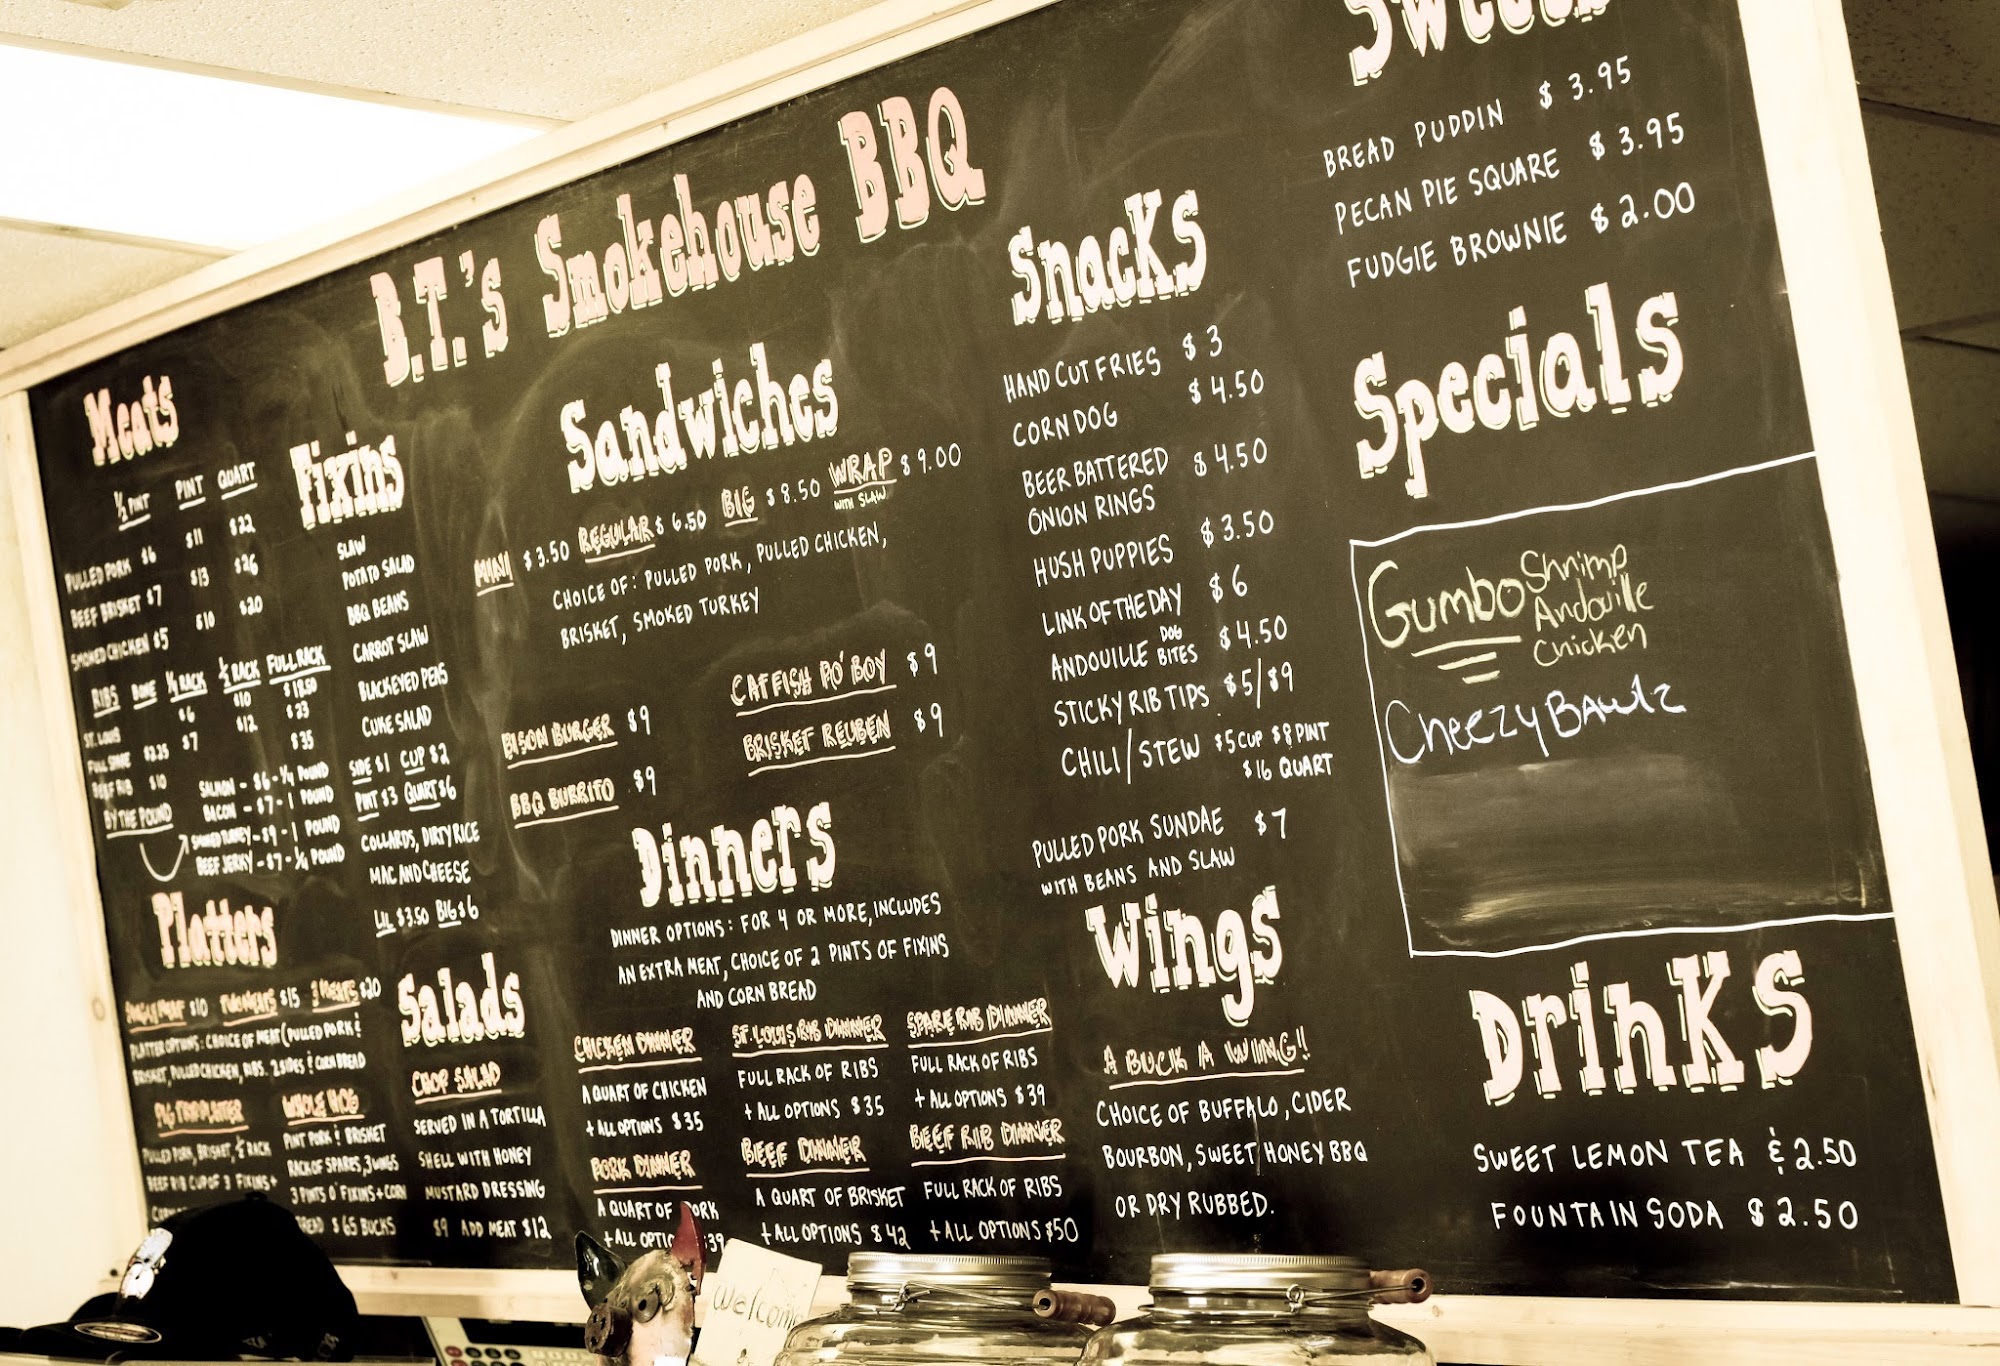 B.T.'s Smokehouse BBQ
Meats
½ PINT PINT QUART
PULLED PORK $6 $11 $22
BEEF BRISKET $7 $13 $26
SMOKED CHICKEN $5 $10 $20
RIBS BONE ¼ RACK ½ RACK FULL RACK
ST. LOUIS $6 $10 $18.50
FULL SPARE $7 $12 $23
BEEF RIB $10 $35
BY THE POUND
SALMON - $6 - ¼ POUND
BACON - $7 - 1 POUND
SMOKED TURKEY - $9 - 1 POUND
BEEF JERKY - $7 - ¼ POUND
Fixins
SLAW
POTATO SALAD
BBQ BEANS
CARROT SLAW
BLACKEYED PEAS
CUKE SALAD
SIDE $1 CUP $2
PINT $3 QUART $6
COLLARDS, DIRTY RICE
MAC AND CHEESE
LIL $3.50 BIG $6
Platters
SINGLE MEAT $10 TWO MEATS $15 3 MEATS $20
PLATTER OPTIONS: CHOICE OF MEAT (PULLED PORK &
BRISKET, PULLED CHICKEN, RIBS. 2 SIDES & CORN BREAD
PIG TRIP PLATTER
PULLED PORK, BRISKET, ½ RACK
BEEF RIB CUP OF 3 FIXINS +
WHOLE HOG
PINT PORK & BRISKET
RACK OF SPARES, 3 WINGS
3 PINTS O' FIXINS + CORN
BREAD $65 BUCKS
Salads
CHOP SALAD
SERVED IN A TORTILLA
SHELL WITH HONEY
MUSTARD DRESSING
$9 ADD MEAT $12
Sandwiches
MINI $3.50 REGULAR $6.50 BIG $8.50 WRAP $9.00
WITH SLAW
CHOICE OF: PULLED PORK, PULLED CHICKEN,
BRISKET, SMOKED TURKEY
CATFISH PO' BOY $9
BISON BURGER $9
BRISKET REUBEN $9
BBQ BURRITO $9
Dinners
DINNER OPTIONS: FOR 4 OR MORE, INCLUDES
AN EXTRA MEAT, CHOICE OF 2 PINTS OF FIXINS
AND CORN BREAD
CHICKEN DINNER
A QUART OF CHICKEN
+ ALL OPTIONS $35
PORK DINNER
A QUART OF PORK
+ ALL OPTIO $39
ST. LOUIS RIB DINNER
FULL RACK OF RIBS
+ ALL OPTIONS $35
BEEF DINNER
A QUART OF BRISKET
+ ALL OPTIONS $42
SPARE RIB DINNER
FULL RACK OF RIBS
+ ALL OPTIONS $39
BEEF RIB DINNER
FULL RACK OF RIBS
+ ALL OPTIONS $50
Snacks
HAND CUT FRIES $3
CORN DOG $4.50
BEER BATTERED $4.50
ONION RINGS
HUSH PUPPIES $3.50
LINK OF THE DAY $6
ANDOUILLE DOG BITES $4.50
STICKY RIB TIPS $5/$9
CHILI/STEW $5 CUP $8 PINT
$16 QUART
PULLED PORK SUNDAE $7
WITH BEANS AND SLAW
Wings
A BUCK A WING!!
CHOICE OF BUFFALO, CIDER
BOURBON, SWEET HONEY BBQ
OR DRY RUBBED.
Sweets
BREAD PUDDIN $3.95
PECAN PIE SQUARE $3.95
FUDGIE BROWNIE $2.00
Specials
Gumbo Shrimp
Andouille
Chicken
Cheezy BAwlz
Drinks
SWEET LEMON TEA $2.50
FOUNTAIN SODA $2.50
Welcome